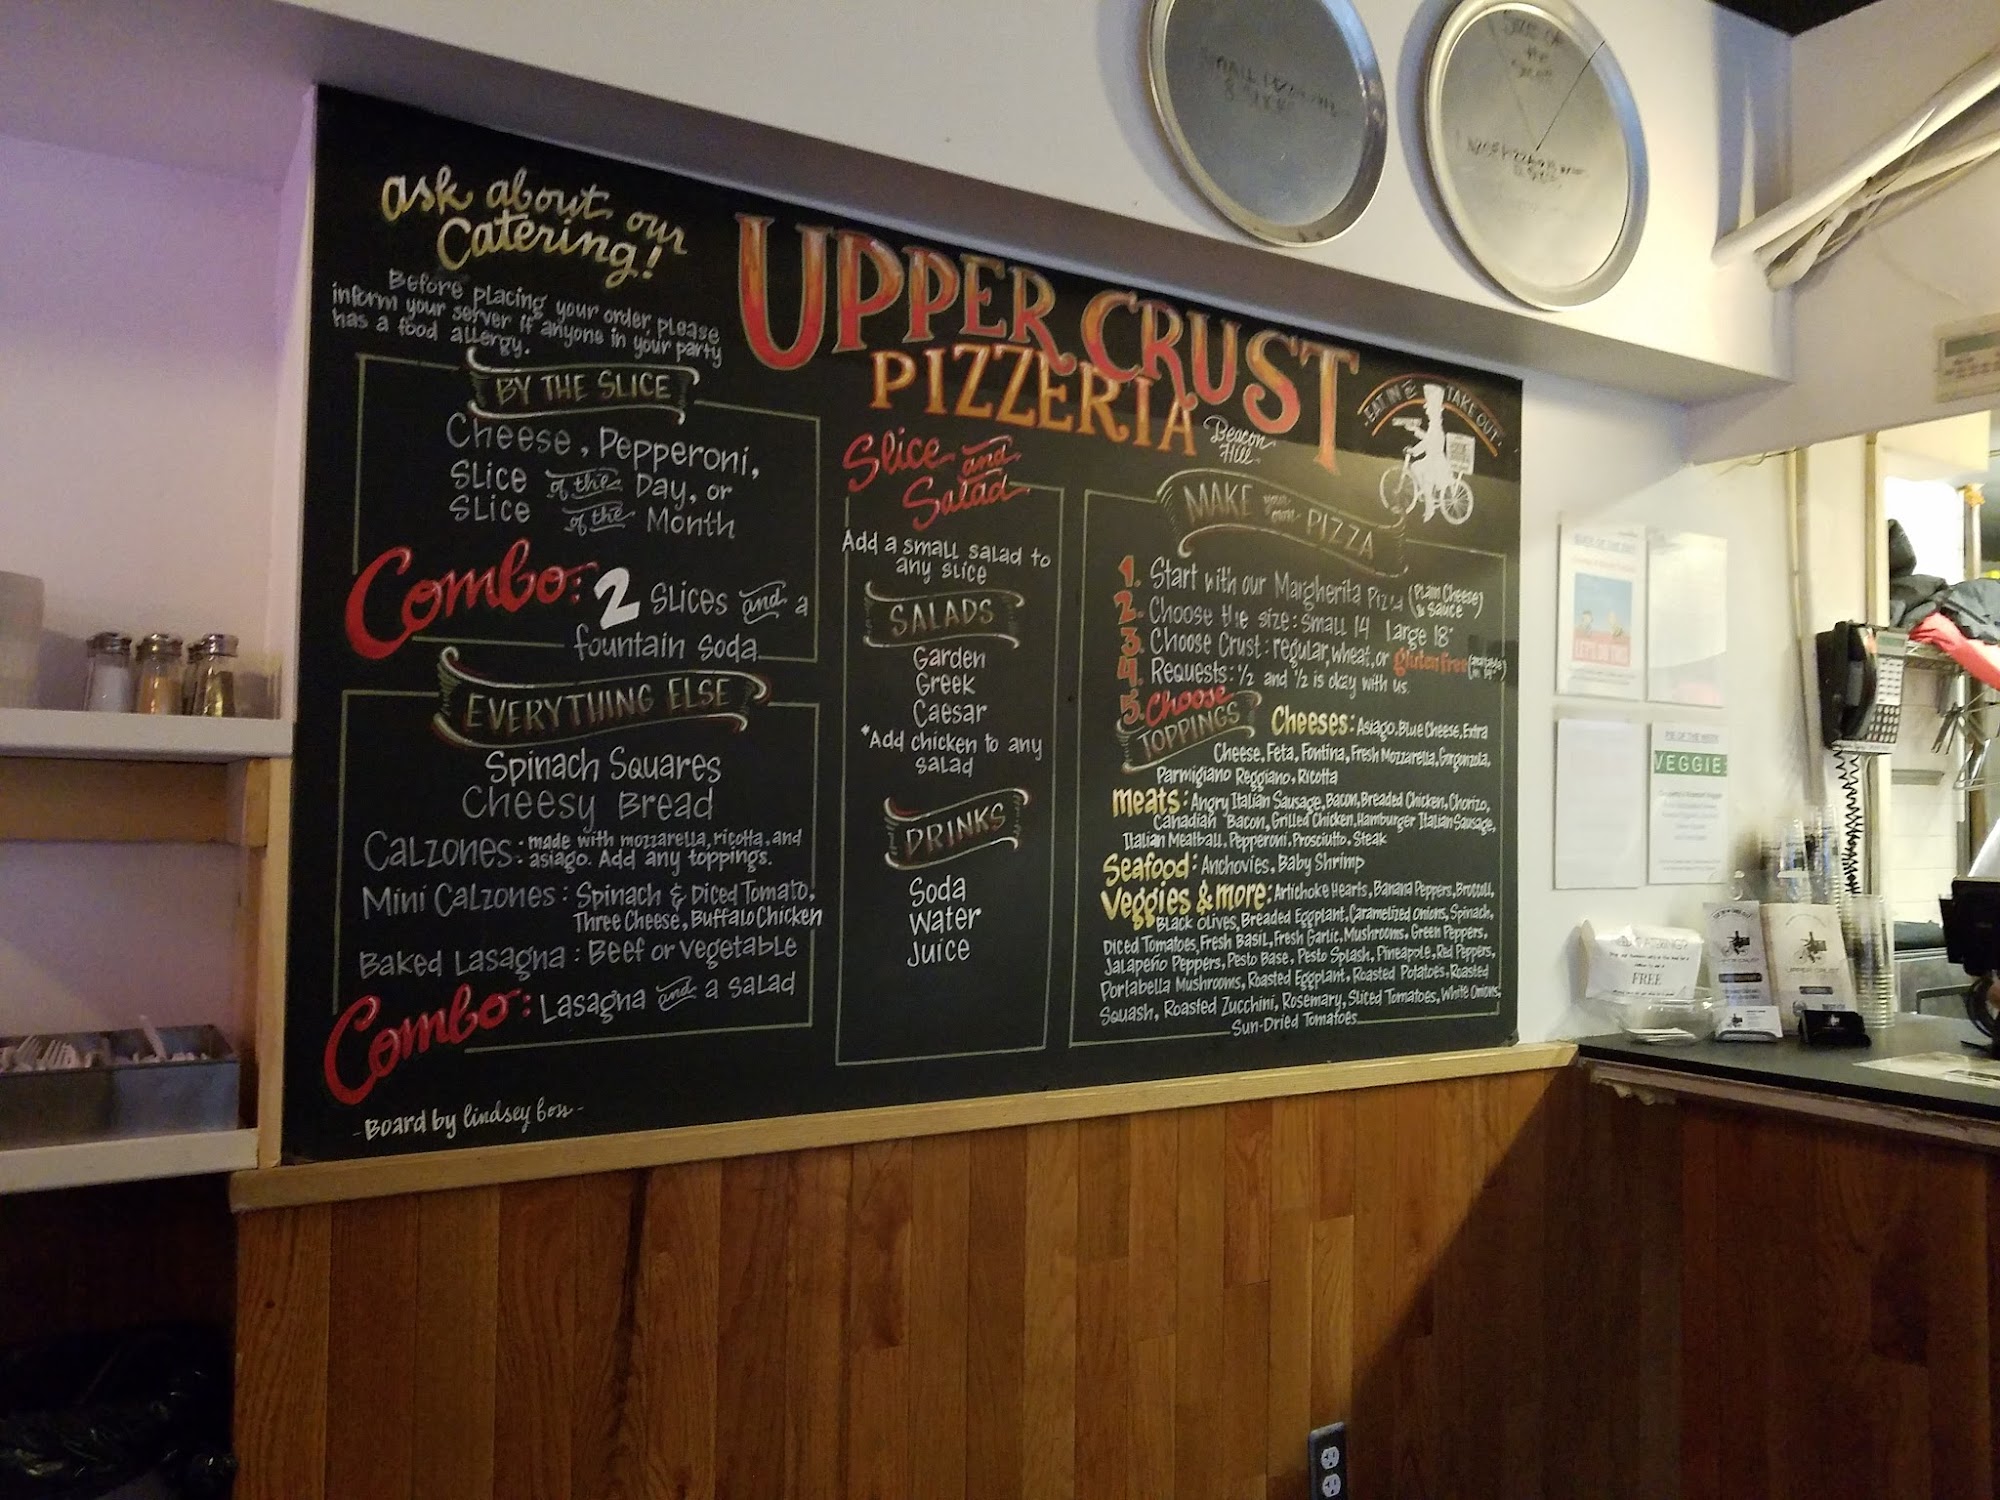 ask about our
Catering!
Before placing your order, please
inform your server if anyone in your party
has a food allergy.
UPPER CRUST
PIZZERIA
Beacon
Hill
EAT IN & TAKE OUT
BY THE SLICE
Cheese, Pepperoni,
Slice of the Day, or
Slice of the Month
Combo: 2 Slices and a
fountain soda
EVERYTHING ELSE
Spinach Squares
Cheesy Bread
Calzones: made with mozzarella, ricotta, and
asiago. Add any toppings.
Mini Calzones: Spinach & Diced Tomato,
Three Cheese, Buffalo Chicken
Baked Lasagna: Beef or Vegetable
Combo: Lasagna and a salad
- Board by lindsey bow -
Slice and
Salad
Add a small salad to
any slice
SALADS
Garden
Greek
Caesar
*Add chicken to any
salad
DRINKS
Soda
Water
Juice
MAKE your own PIZZA
1. Start with our Margherita Pizza (Plain Cheese
& sauce)
2. Choose the size: small 14 large 18"
3. Choose Crust: regular, wheat, or gluten free
4. Requests: ½ and ½ is okay with us.
5. Choose
TOPPINGS
Cheeses: Asiago, Blue Cheese, Extra
Cheese, Feta, Fontina, Fresh Mozzarella, Gorgonzola,
Parmigiano Reggiano, Ricotta
meats: Angry Italian Sausage, Bacon, Breaded Chicken, Chorizo,
Canadian Bacon, Grilled Chicken, Hamburger Italian Sausage,
Italian Meatball, Pepperoni, Prosciutto, Steak
Seafood: Anchovies, Baby Shrimp
Veggies & more: Artichoke Hearts, Banana Peppers, Broccoli,
Black Olives, Breaded Eggplant, Caramelized Onions, Spinach,
Diced Tomatoes, Fresh Basil, Fresh Garlic, Mushrooms, Green Peppers,
Jalapeño Peppers, Pesto Base, Pesto Splash, Pineapple, Red Peppers,
Portabella Mushrooms, Roasted Eggplant, Roasted Potatoes, Roasted
Squash, Roasted Zucchini, Rosemary, Sliced Tomatoes, White Onions,
Sun-Dried Tomatoes
PIE OF THE WEEK
VEGGIE
FREE
UPPER CRUST